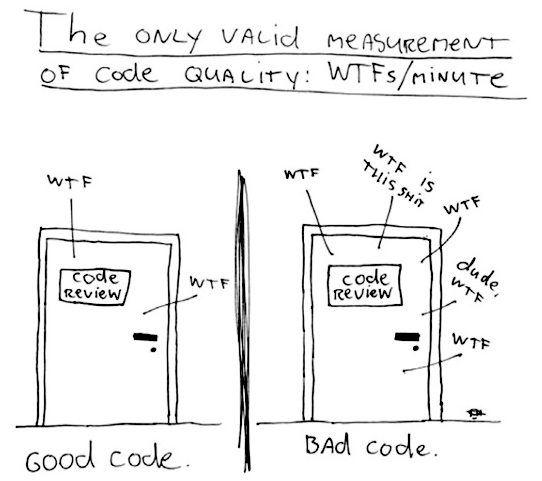 The ONLY VALID MEASUREMENT
OF CODE QUALITY: WTFs/MINUTE
WTF
CODE
REVIEW
WTF
GOOD CODE.
WTF
WTF IS
THIS SHIT
WTF
CODE
REVIEW
dude,
WTF
WTF
BAD CODE.